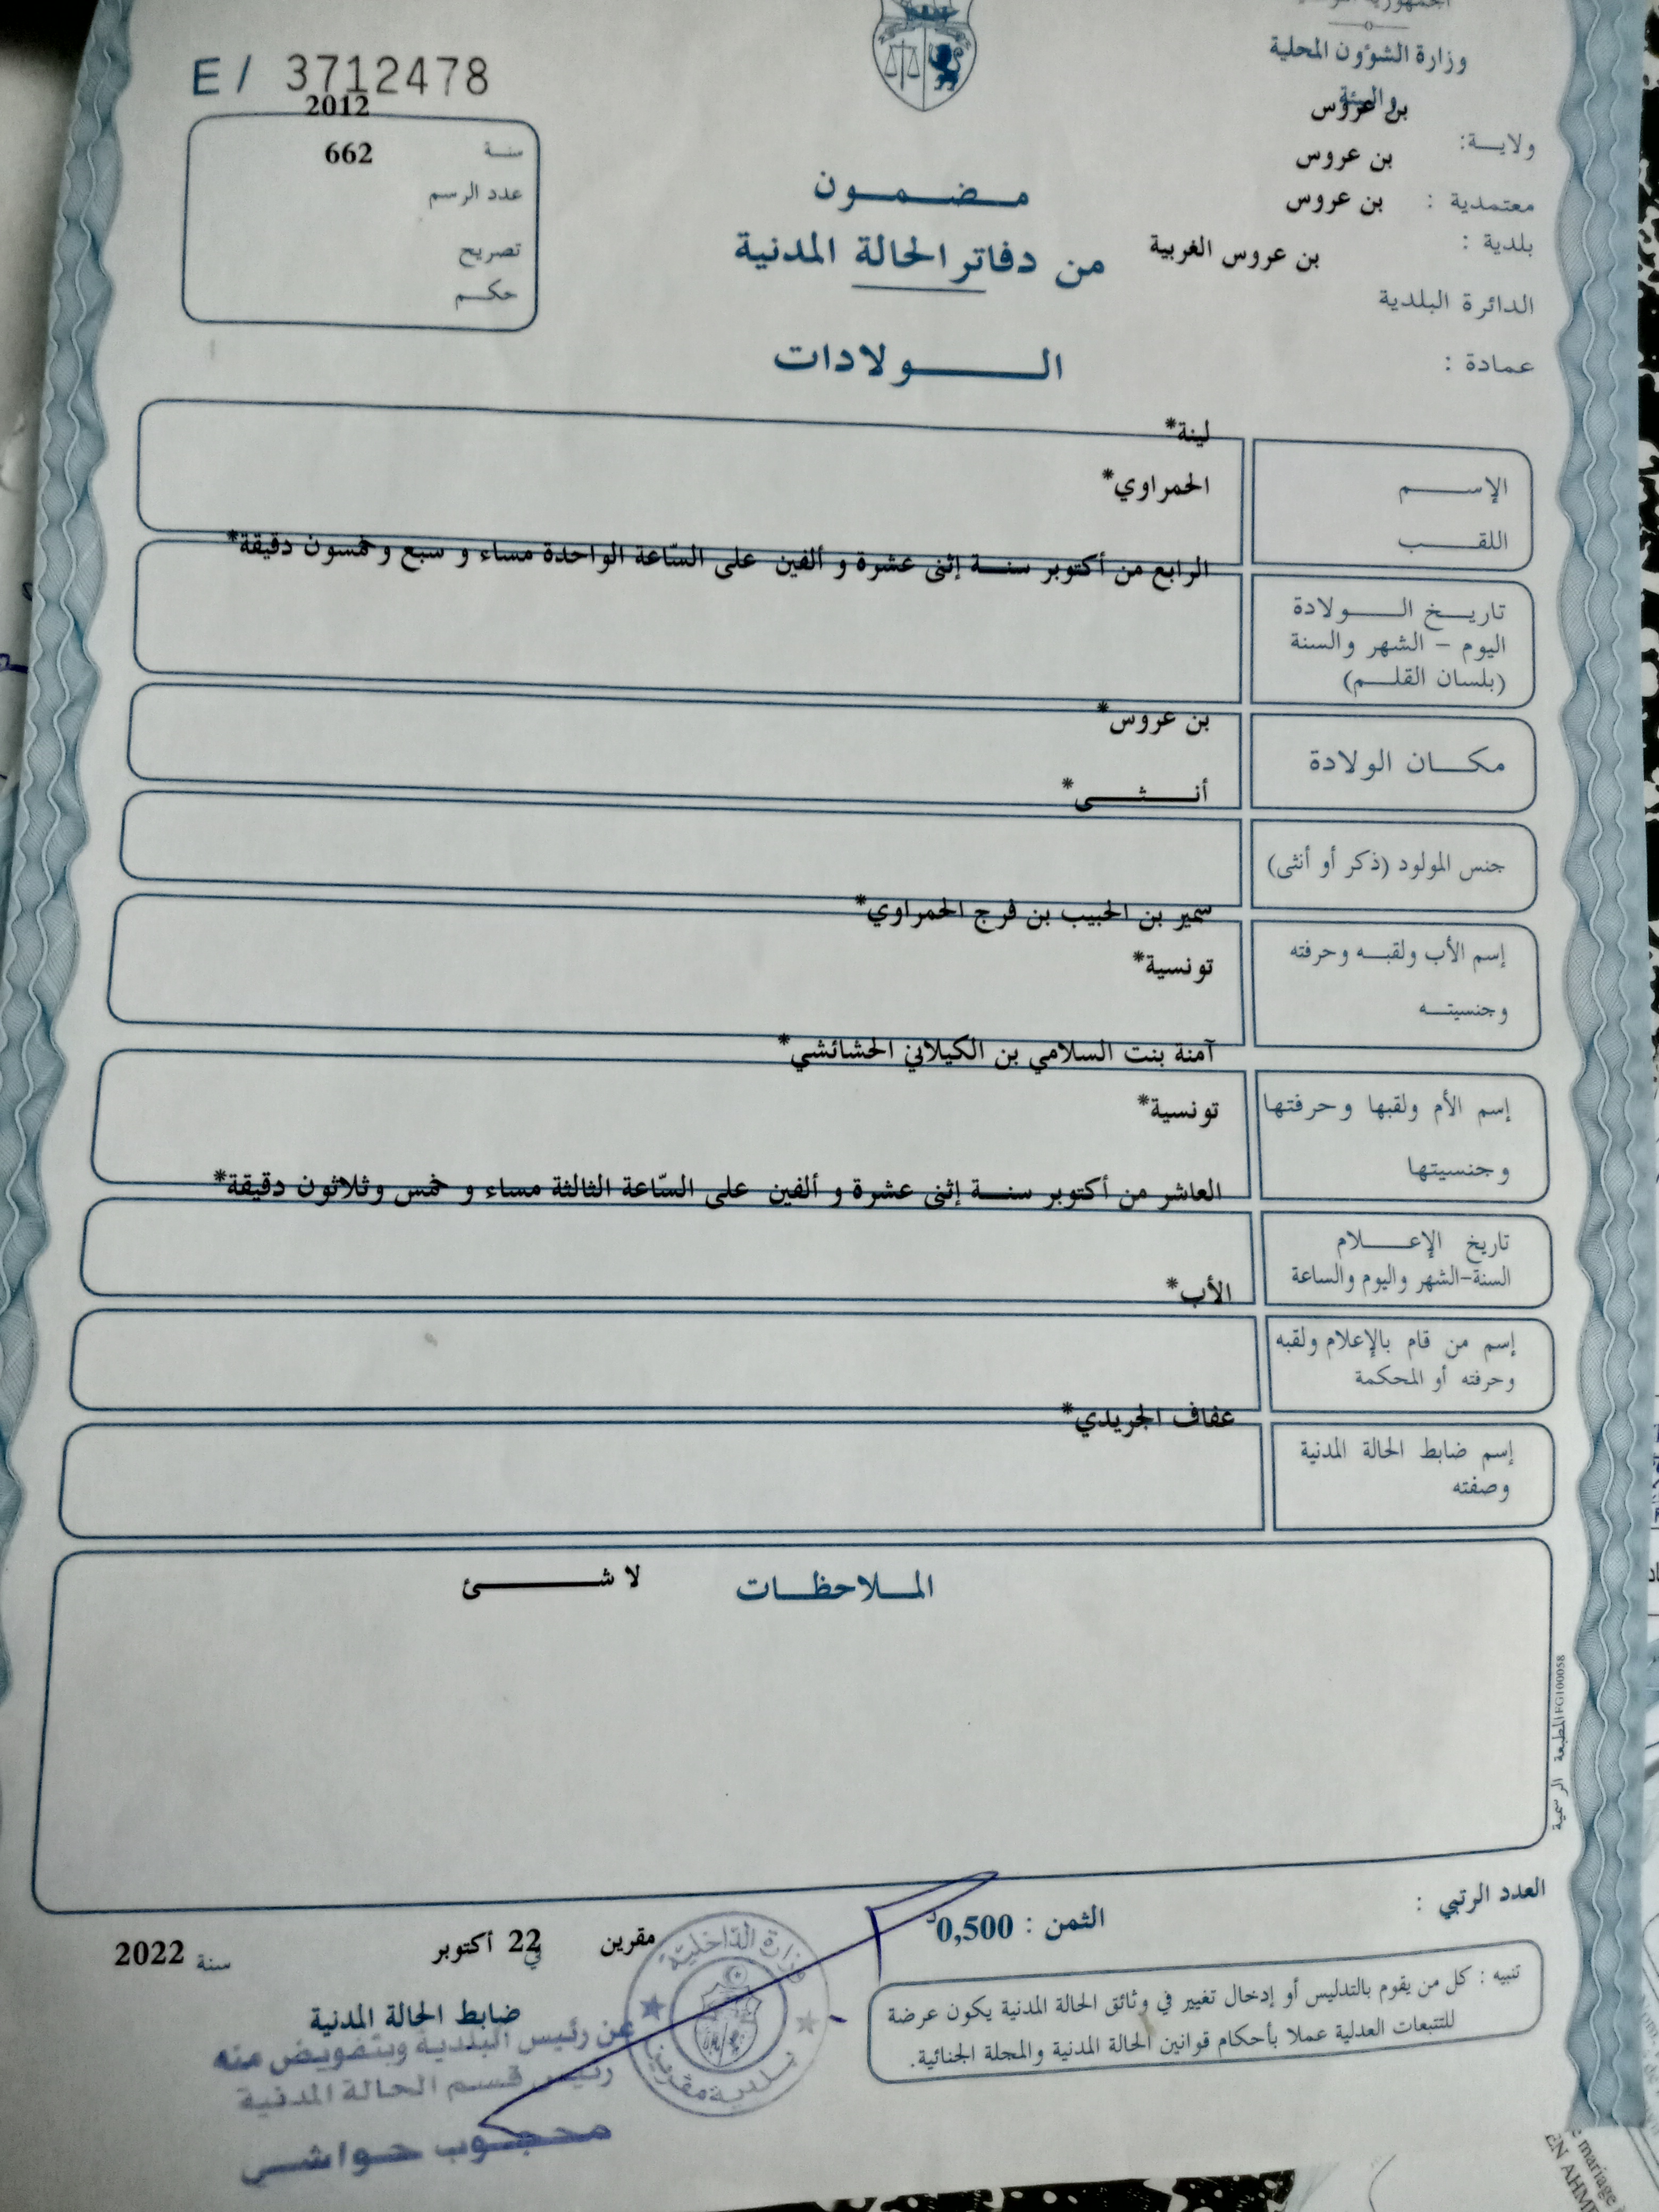 E/ 3712478
وزارة الشؤون المحلية
والبيئة
ولايـــة: بن عروس
معتمدية : بن عروس
بلدية : بن عروس
الدائرة البلدية بن عروس الغربية
عمادة :
سنــة 2012
عدد الرسم 662
تصريح
حكــم
مــضــمــون
من دفاتر الحالة المدنية
الـــولادات
الإســـم لينة*
اللقـــب الحمراوي*
تاريــخ الـــولادة
اليوم – الشهر والسنة
(بلسان القلــم)
الرابع من أكتوبر سنــة إثنى عشرة و ألفين على السّاعة الواحدة مساء و سبع و خمسون دقيقة*
مكـــان الولادة بن عروس*
جنس المولود (ذكر أو أنثى) أنـــثـــى*
إسم الأب ولقبــه وحرفته سمير بن الحبيب بن فرج الحمراوي*
وجنسيتــه تونسية*
إسم الأم ولقبها وحرفتها آمنة بنت السلامي بن الكيلاني الحشائشي*
وجنسيتها تونسية*
تاريخ الإعـــلام
السنة-الشهر واليوم والساعة
العاشر من أكتوبر سنــة إثنى عشرة و ألفين على السّاعة الثالثة مساء و خمس وثلاثون دقيقة*
إسم من قام بالإعلام ولقبه
وحرفته أو المحكمة
الأب*
إسم ضابط الحالة المدنية
وصفته
عفاف الجريدي*
المــلاحظــات لا شـــئ
المطبعة الرسمية FG100058
العدد الرتبي :
الثمن : 0,500د
مقرين في 22 أكتوبر سنة 2022
ضابط الحالة المدنية
عن رئيس البلدية وبتفويض منه
رئيس قسم الحالة المدنية
محجوب حواشي
وزارة الداخليّة
بلدية مقرين
تنبيه : كل من يقوم بالتدليس أو إدخال تغيير في وثائق الحالة المدنية يكون عرضة
للتتبعات العدلية عملا بأحكام قوانين الحالة المدنية والمجلة الجنائية.
mariage
EN AHM